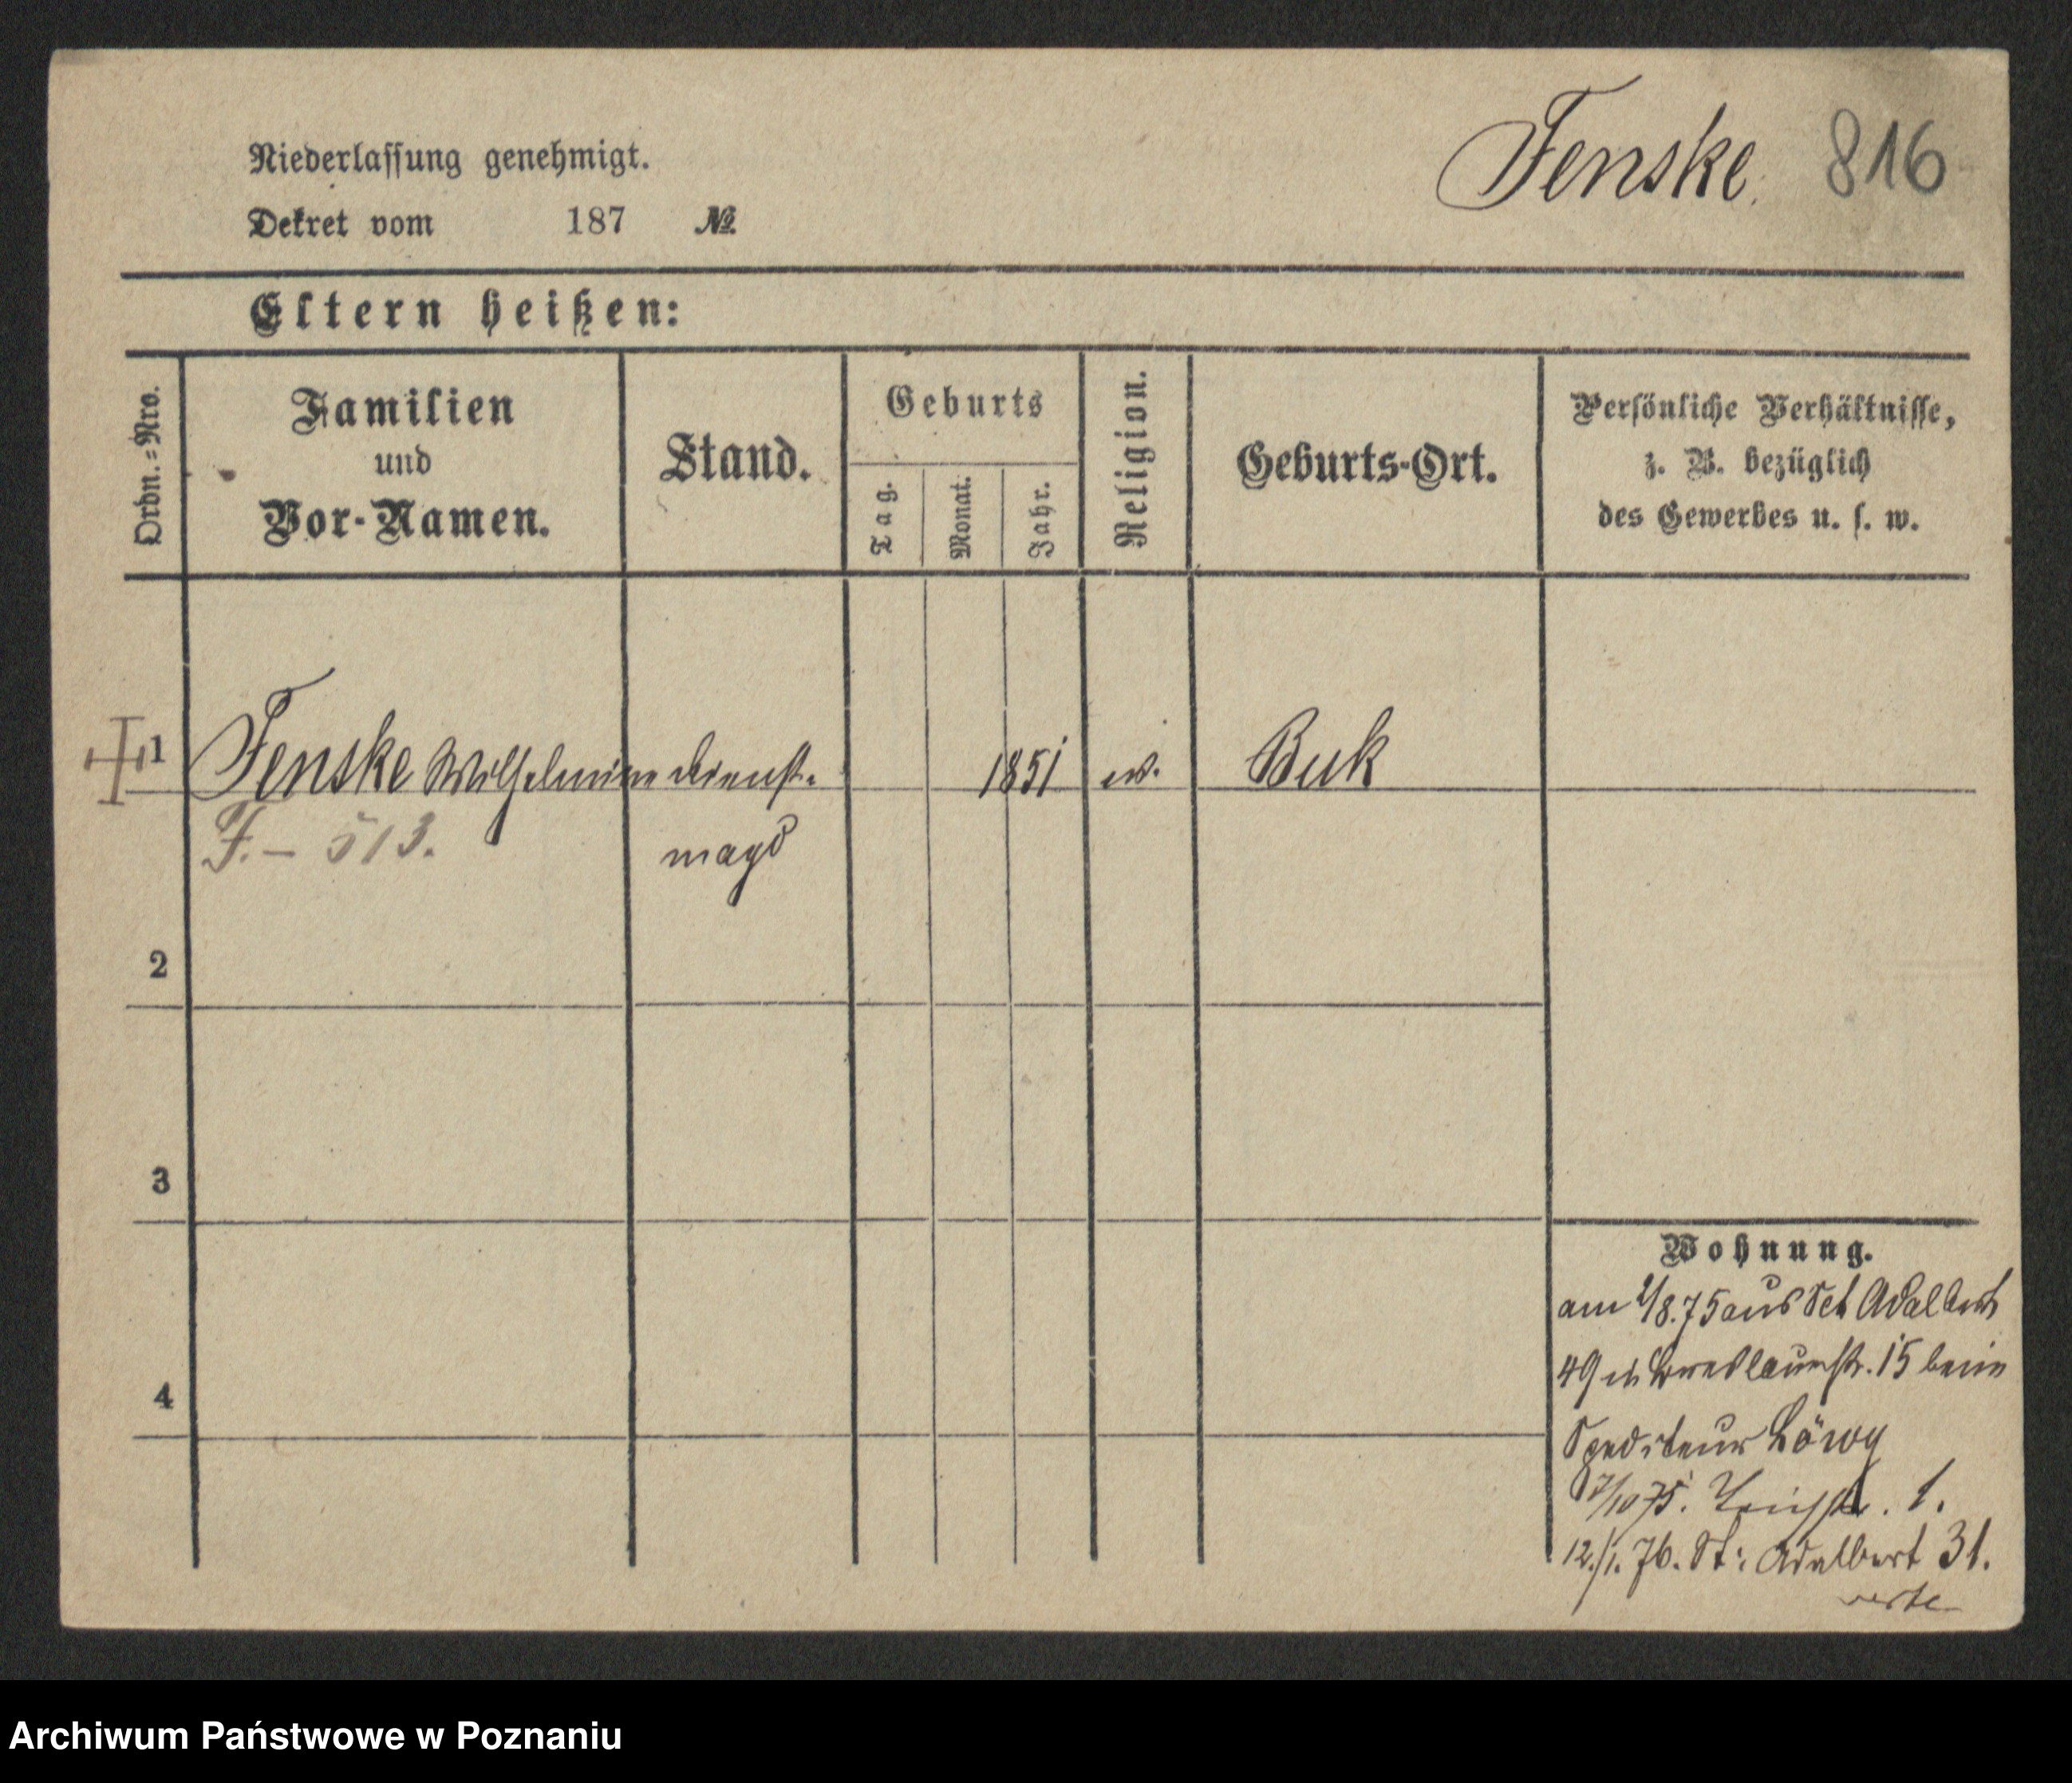 Fenske. 816
Niederlassung genehmigt.
Dekret vom 187 №
Eltern heißen:
Ordn.=Nro.
Familien
und
Vor-Namen.
Stand.
Geburts
Tag.
Monat.
Jahr.
Religion.
Geburts-Ort.
Persönliche Verhältnisse,
z. B. bezüglich
des Gewerbes u. s. w.
1 Fenske Wilhelmine Dienst- 1851 ev. Buk
F. – 513. magd
2
3
4
Wohnung.
am 2/8.75 aus Set Adalbert
49 in Breslauerstr. 15 beim
Spediteur Löwy
7/10 75. 1.
12./1. 76. St: Adalbert 31.
verte
Archiwum Państwowe w Poznaniu